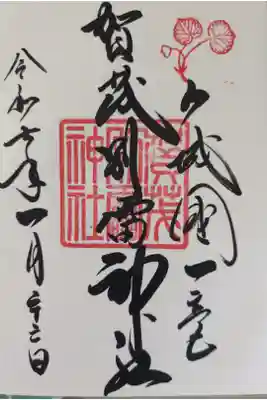 山城國一之宮
賀茂別雷神社
令和六年一月二十六日
賀茂別雷神社